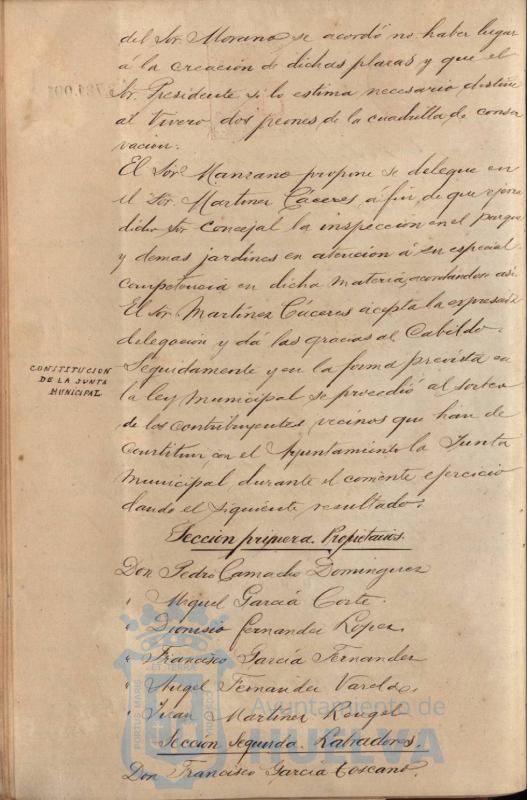 del Sor. Morano, se acordó no haber lugar
á la creacion de dichas plazas y que el
Sr. Presidente si lo estima necesario destine
al Vivero dos peones de la cuadrilla de conser
vacion.
El Sor Manzano propone se delegue en
el Sor. Martinez Cáceres, á fin de que ejerza
dicho Sor Concejal la inspeccion en el parque
y demas jardines en atencion á su especial
competencia en dicha materia, acordandose asi.
El Sor Martinez Cáceres acepta la expresada
delegacion y dá las gracias al Cabildo.
CONSTITUCION
DE LA JUNTA
MUNICIPAL
Seguidamente y en la forma prevista en
la ley Municipal se procedió al sorteo
de los contribuyentes vecinos que han de
constituir con el Ayuntamiento la Junta
Municipal durante el corriente ejercicio
dando el siguiente resultado.
Seccion primera. Propietarios.
Don Pedro Camacho Dominguez
" Miguel García Corte.
" Dionisio fernandez Lopez.
" Francisco García Fernandez
" Angel Fernandez Varela.
" Juan Martinez Rengel
Seccion Segunda. Labradores.
Don Francisco García Toscano.
Ayuntamiento de
HUELVA
PORTUS MARIS
ET TERRAE